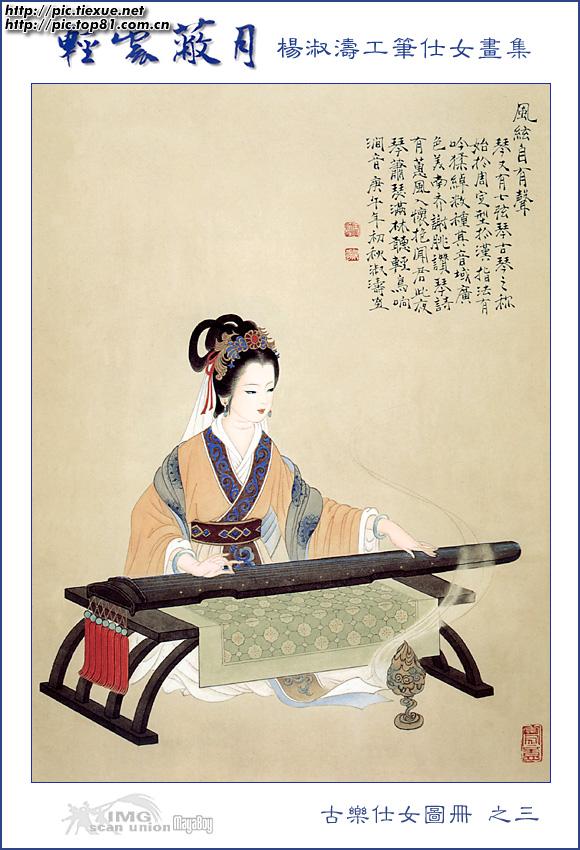 http://pic.tiexue.net
http://pic.top81.com.cn
輕雲蔽月
楊淑濤工筆仕女畫集
風絃自有聲
琴又有七弦琴古琴之称
始於周定型於漢指法有
吟猱綽救種其音域廣
色美南齐謝朓讚琴詩
有蕙風入懷抱聞君此夜
琴蕭瑟滿林聽輕鳥响
澗音庚午年初秋淑濤畫
IMG
scan union MayaBoy
古樂仕女圖冊 之三